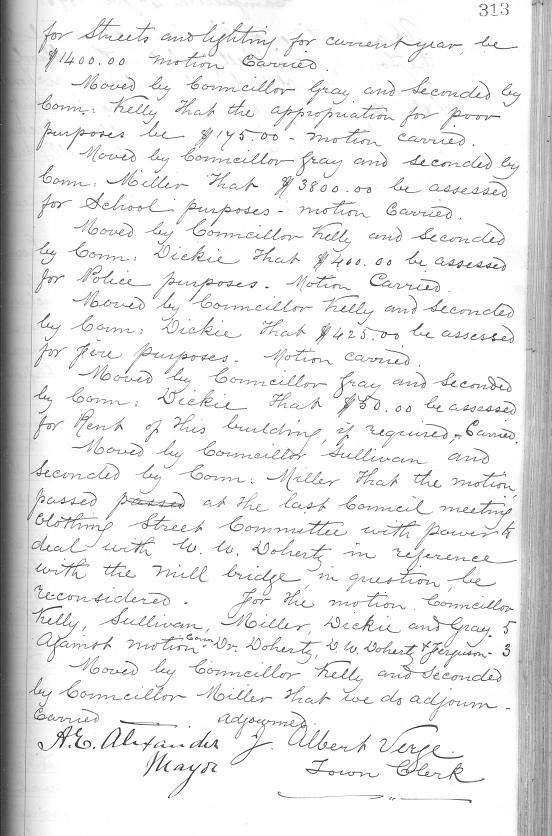 313
for Streets and lighting, for current year, be
$1400.00 motion Carried.
Moved by Councillor Gray and Seconded by
Coun: Kelly That the appropriation for poor
purposes be $175.00 - motion carried.
Moved by Councillor Gray and seconded by
Coun: Miller That $3800.00 be assessed
for School purposes - motion Carried.
Moved by Councillor Kelly and Seconded
by Coun: Dickie That $400.00 be assessed
for Police purposes. Motion Carried.
Moved by Councillor Kelly and seconded
by Coun: Dickie That $425.00 be assessed
for fire purposes. Motion carried.
Moved by Councillor Gray and Seconded
by Coun: Dickie That $50.00 be assessed
for Rent of this building, if required - Carried.
Moved by Councillor Sullivan and
Seconded by Coun: Miller That the motion
passed passed at the last Council meeting
Clothing Street Committee with power to
deal with W. W. Doherty in reference
with the mill bridge, in question, be
reconsidered. For the motion Councillor
Kelly, Sullivan, Miller, Dickie and Gray. 5
Against motion Coun Dr. Doherty, D. W. Doherty & Ferguson - 3
Moved by Councillor Kelly and Seconded
by Councillor Miller that we do adjourn -
Carried adjourned.
A. E. Alexander J. Albert Verge
Mayor Town Clerk